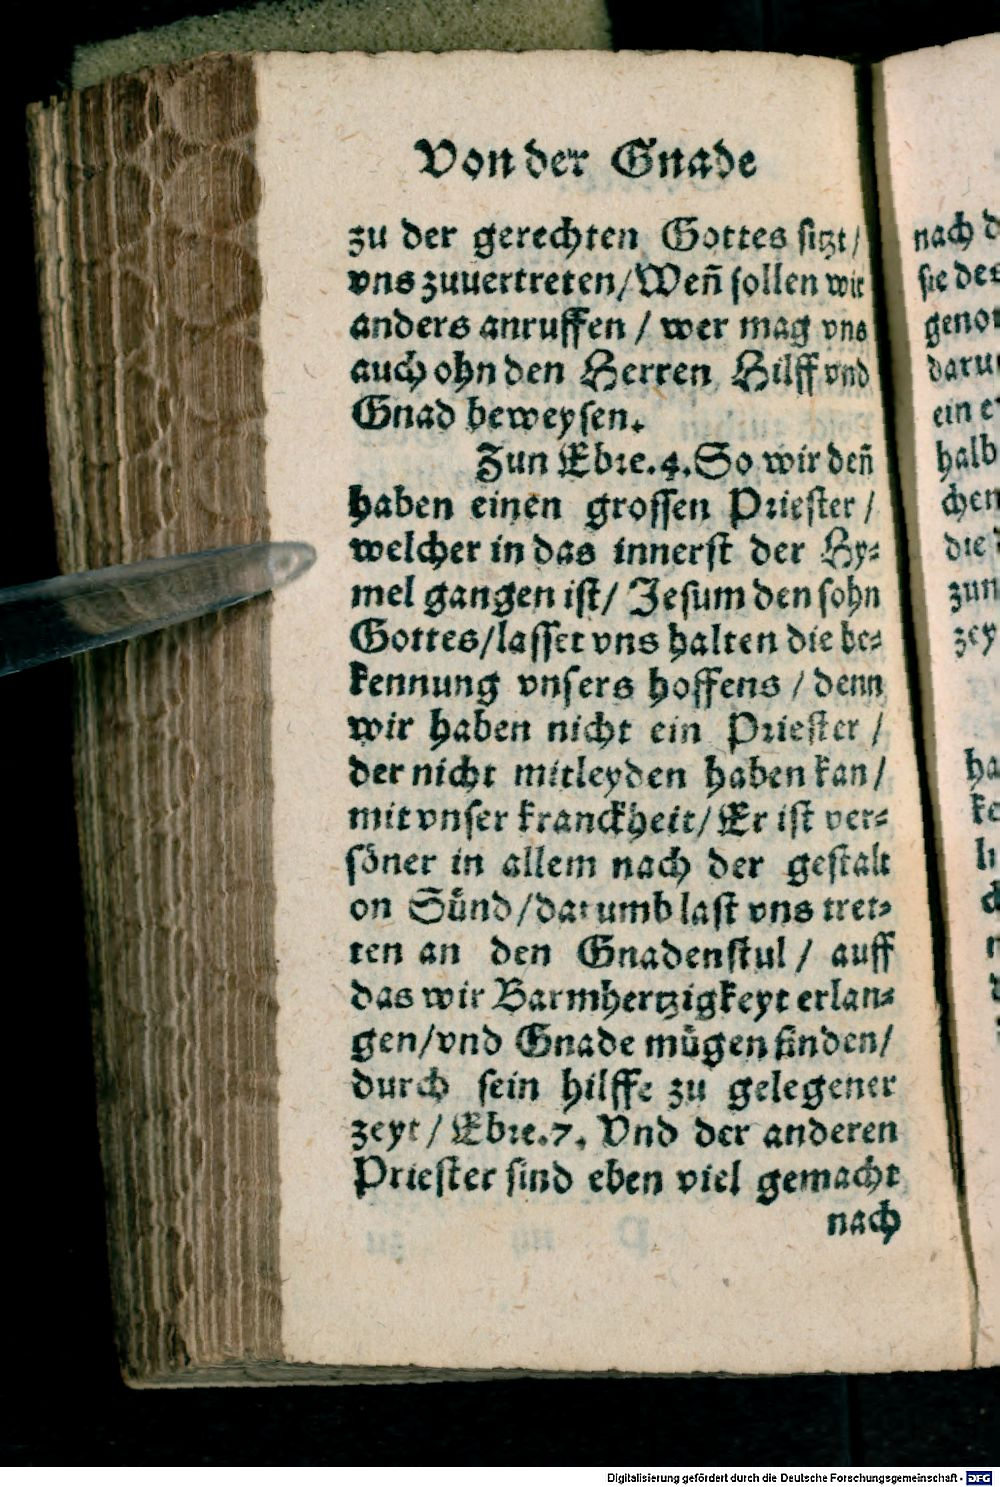 Von der Gnade
zu der gerechten Gottes sitzt/
vns zuuertreten/Weñ sollen wir
anders anruffen / wer mag vns
auch ohn den Herren Hilff vnd
Gnad beweysen.
Zun Ebre.4. So wir deñ
haben einen grossen Priester /
welcher in das innerst der Hy⸗
mel gangen ist/ Jesum den sohn
Gottes/lasset vns halten die be⸗
kennung vnsers hoffens / denn
wir haben nicht ein Priester /
der nicht mitleyden haben kan/
mit vnser kranckheit/ Er ist ver⸗
söner in allem nach der gestalt
on Sünd/darumb last vns tret⸗
ten an den Gnadenstul / auff
das wir Barmhertzigkeyt erlan⸗
gen/vnd Gnade mügen finden/
durch sein hilffe zu gelegener
zeyt / Ebre.7. Vnd der anderen
Priester sind eben viel gemacht
nach
nach d
sie des
genom
daru
ein e
halb
chen
die
zun
zey
ha
ke
Digitalisierung gefördert durch die Deutsche Forschungsgemeinschaft - DFG